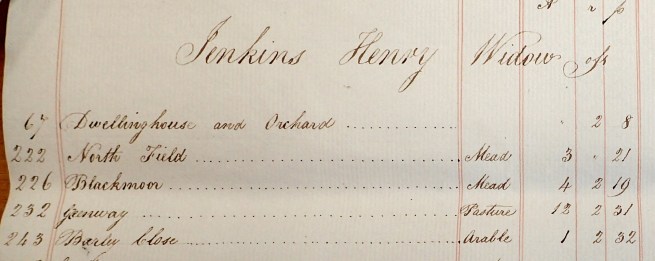 A r p
Jenkins Henry Widow of
67 Dwellinghouse and Orchard .................. 2 8
222 North Field .................. Mead 3 " 21
226 Blackmoor .................. Mead 4 2 19
232 Greenway .................. Pasture 12 2 31
243 Barley Close .................. Arable 1 2 32